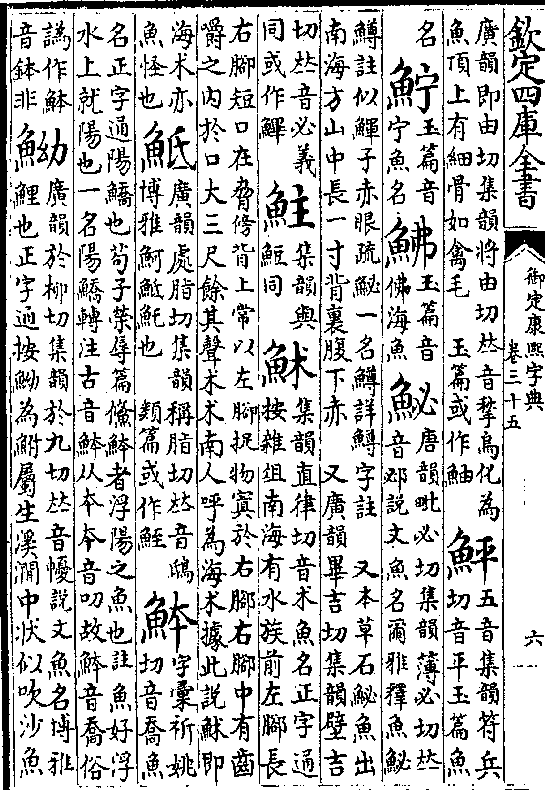 欽定四庫全書
御定康熙字典
卷三十五
六
廣韻即由切集韻將由切𠀤音揫鳥化為
魚頂上有細骨如禽毛 玉篇或作鮋
鮃
五音集韻符兵
切音平玉篇魚
名
⿰魚宁
玉篇音
宁魚名
鮄
玉篇音
佛海魚
鮅
唐韻毗必切集韻薄必切𠀤
音邲說文魚名爾雅釋魚鮅
鱒註似鯶子赤眼疏鮅一名鱒詳鱒字註 又本草石鮅魚出
南海方山中長一寸背裏腹下赤 又廣韻畢吉切集韻壁吉
切𠀤音必義
同或作鷝
⿰魚主
集韻與
䱉同
⿰魚术
集韻直律切音术魚名正字通
按雜俎南海有水族前左腳長
右腳短口在脅傍背上常以左腳捉物寘於右腳右腳中有齒
嚼之内於口大三尺餘其聲术术南人呼為海术據此說⿰魚术即
海术亦
魚怪也
⿰魚氐
廣韻處脂切集韻稱脂切𠀤音鴟
博雅魺⿰魚氐魠也 類篇或作⿰魚至
⿰魚夲
字彙祈姚
切音喬魚
名正字通陽鱎也荀子榮辱篇鯈⿰魚夲者浮陽之魚也註 魚好浮
水上就陽也一名陽鱎轉注古音⿰魚夲从夲夲音叨故⿰魚夲音喬俗
譌作⿰魚本
音鉢非
⿰魚幼
廣韻於柳切集韻於九切𠀤音懮說文魚名博雅
鯉也正字通按⿰魚幼為鮒屬生溪澗中狀似吹沙魚